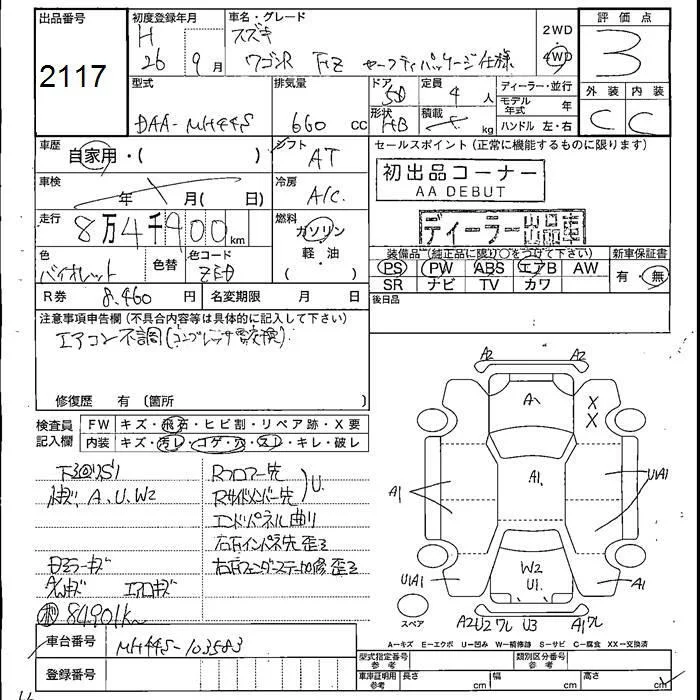 出品番号
2117
初度登録年月
H
26 9月
車名・グレード
スズキ
ワゴンR FZ セーフティパッケージ仕様
2WD
4WD
評価点
3
外装 内装
C C
型式
DAA-MH44S
排気量
660 cc
ドア
5D
形状
HB
定員
4 人
積載
kg
ディーラー・並行
モデル年式 年
ハンドル 左・右
車歴
自家用・( )
シフト
AT
車検
年 月( 日)
冷房
A/C
走行
8万4千900km
燃料
ガソリン
軽・油
( )
色
バイオレット
色替
色コード
R券 8,460 円
名変期限 月 日
セールスポイント(正常に機能するものに限ります)
初出品コーナー
AA DEBUT
ディーラー出品車
装備品(純正品に限り○をつけて下さい)
PS PW ABS エアB AW
SR ナビ TV カワ
新車保証書
有・無
後日品
注意事項申告欄(不具合内容等は具体的に記入して下さい)
エアコン不調(コンプレッサ要交換)
修復歴 有 (箇所
検査員記入欄
FW キズ・飛石・ヒビ割・リペア跡・X要
内装 キズ・汚レ・コゲ・穴・スレ・キレ・破レ
下廻りサビ
小キズ A、U、W2
Rフロアー先
Rサイドメンバー先 U
エンドパネル曲り
右Rインパネ先歪ミ
右Rフェンダーステー加修歪ミ
ミラーキズ
エアロキズ
84901km
A2 A2
A
X
X
A1
A1
U1A1
W2
U1
U1A1
A1
スペア
A2U2ワレ U3 A1ワレ
A=キズ E=エクボ U=凹み W=補修跡 S=サビ C=腐食 XX=交換済
車台番号
MH44S-103583
登録番号
型式指定番号 参考
類別区分番号 参考
車庫証明用 参考
長さ cm
幅 cm
高さ cm